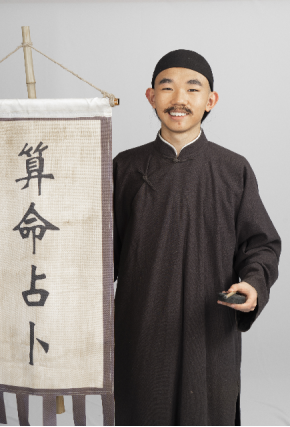 算命占卜